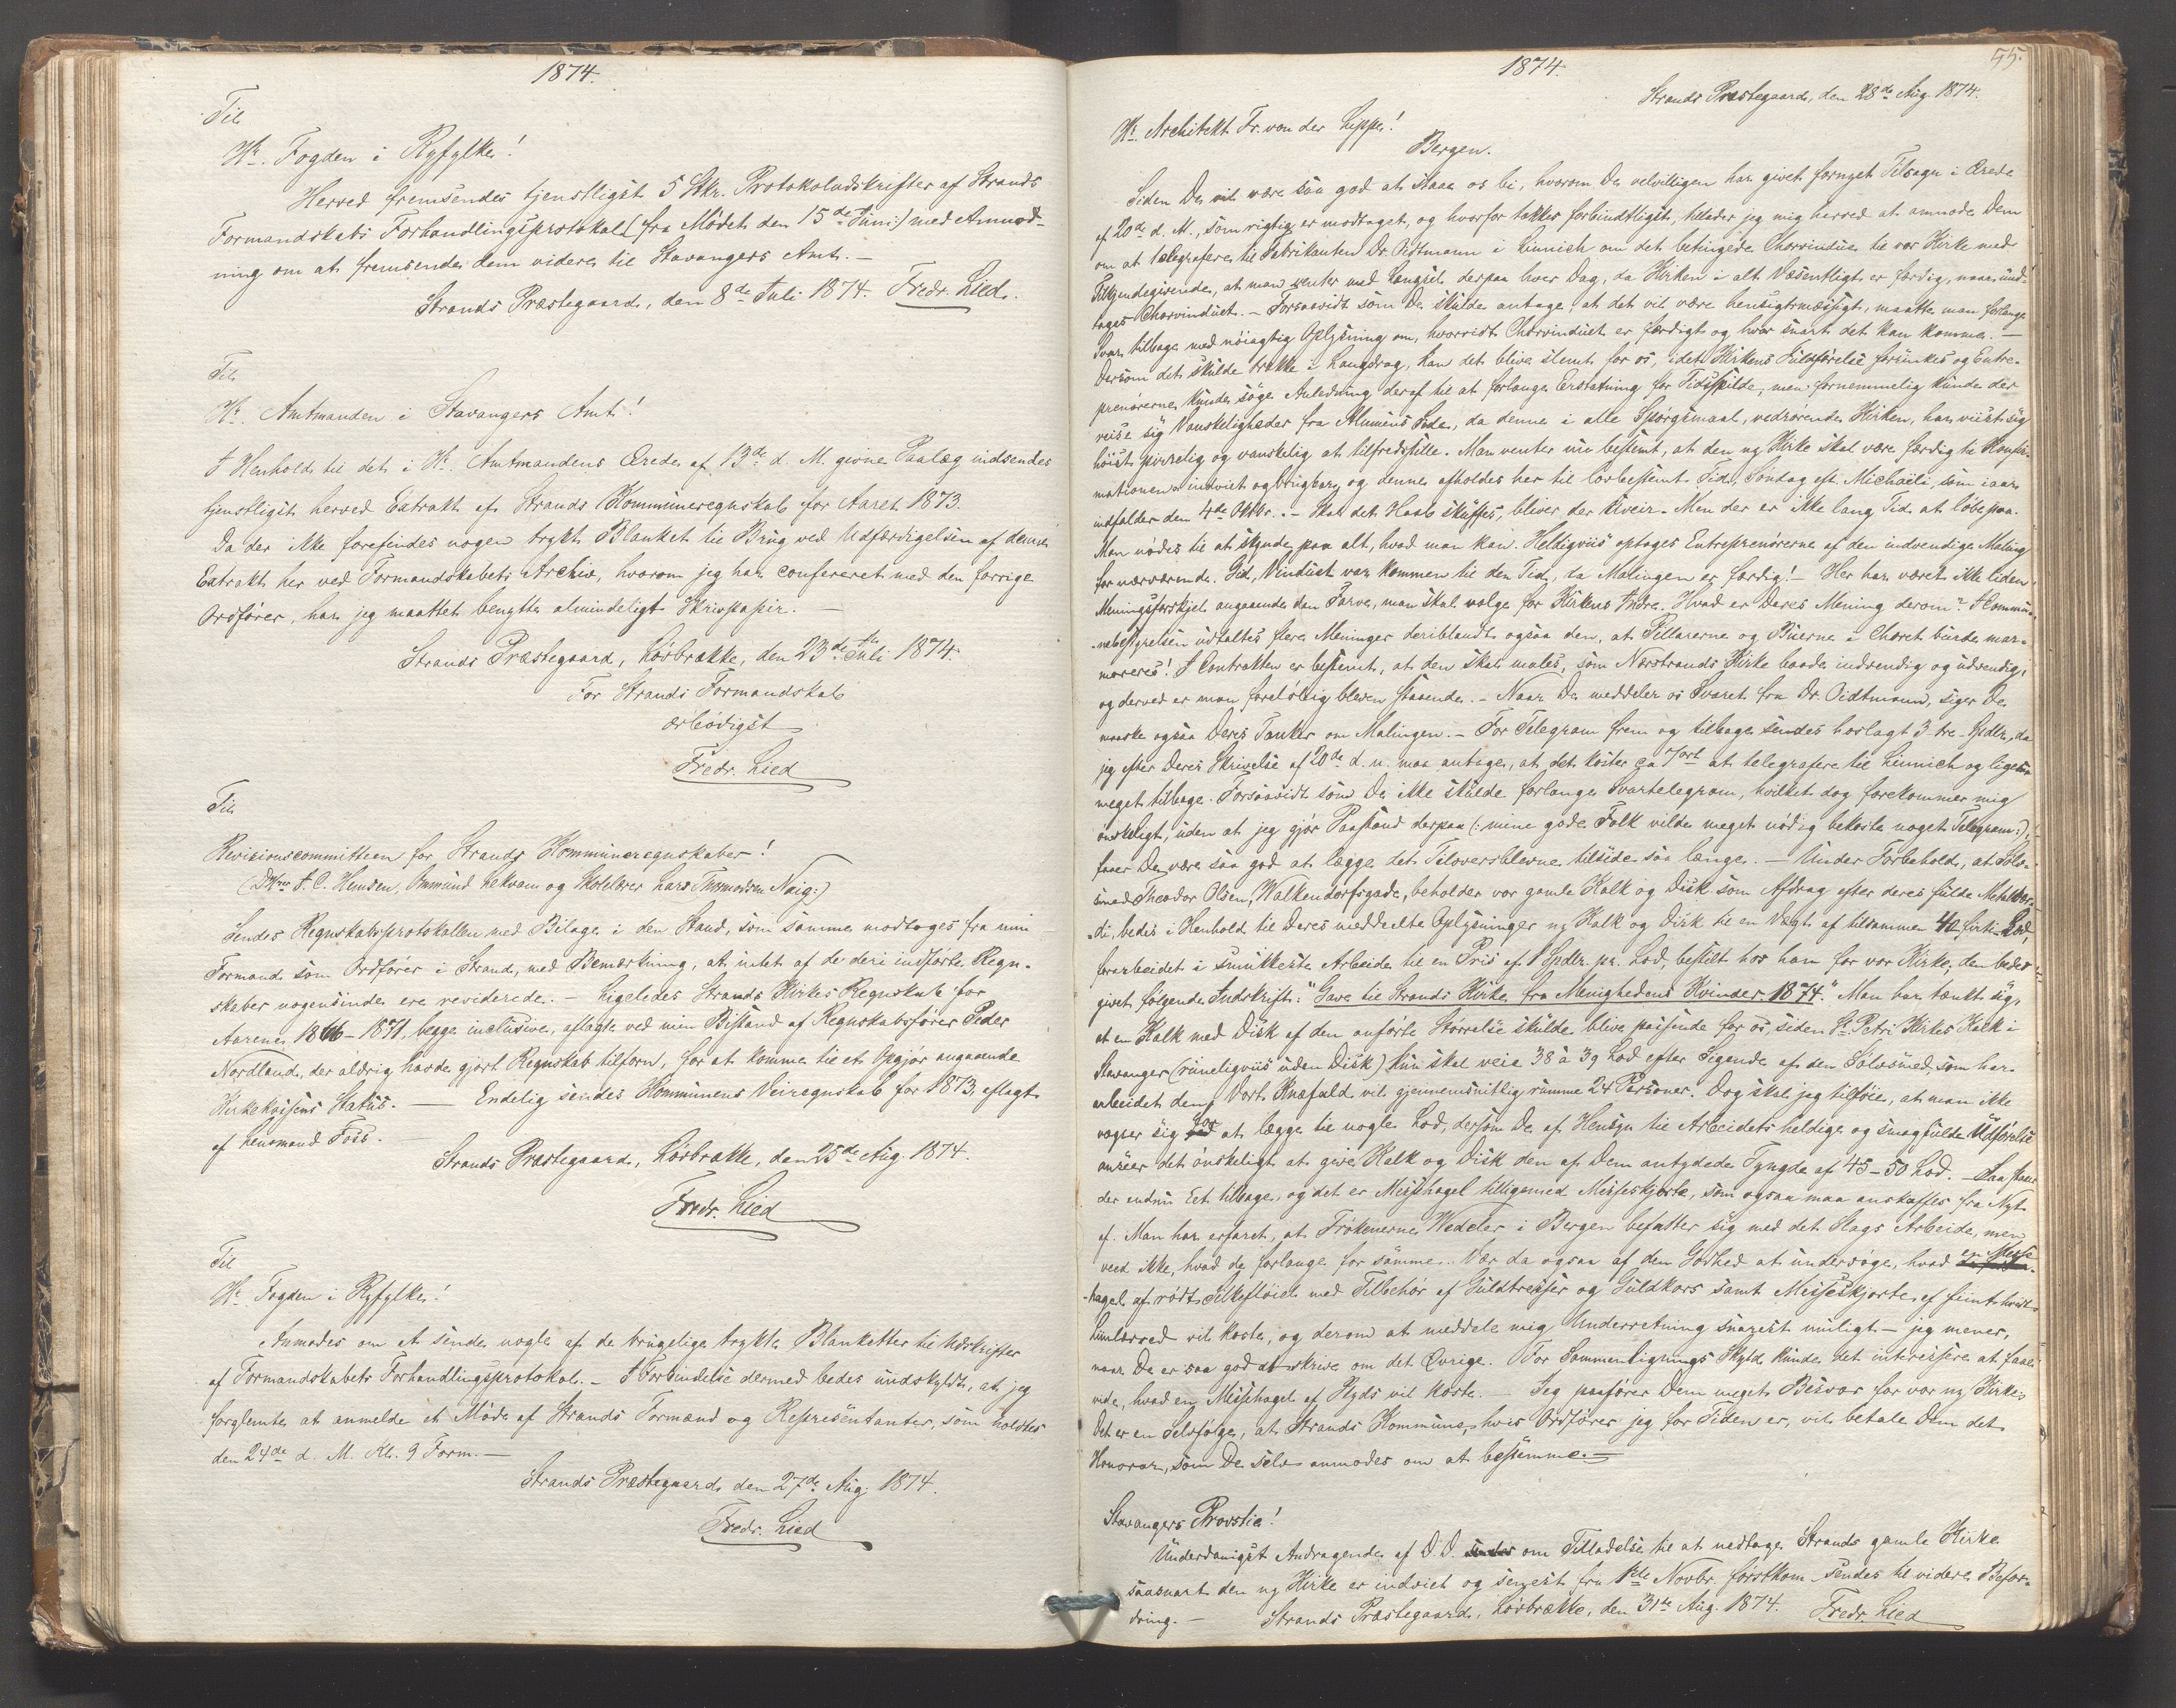 1874.
Til
Hr. Fogden i Ryfylke!
Herved fremsendes tjenstligst 5 Stkr. Protokoludskrifter af Strands
Formandskabs Forhandlingsprotokol (fra Mødet den 15de Juni:) med Anmod-
ning om at fremsende dem videre til Stavangers Amt. —
Strands Præstegaard, den 8de Juli 1874. Fredr. Lied.
Til
Hr. Amtmanden i Stavangers Amt!
I Henhold til det i Hr. Amtmandens Ærede af 13de d. M. givne Paalæg indsendes
tjenstligst herved Extrakt af Strands Kommuneregnskab for Aaret 1873.
Da der ikke forefindes nogen trykt Blanket til Brug ved Udfærdigelsen af denne
Extrakt her ved Formandskabets Archiv, hvorom jeg har confereret med den forrige
Ordfører, har jeg maattet benytte almindeligt Skrivpapir. —
Strands Præstegaard, Lørbrække, den 23de Juli 1874.
For Strands Formandskab
ærbødigst
Fredr. Lied
Til
Revisionscommitteen for Strands Kommuneregnskaber!
(DHrr. Ommund Lekvam og Skolelærer Lars Thormodsen Naig:)
Sendes Regnskabsprotokollen med Bilage i den Stand, som samme modtoges fra min
Formand som Ordfører i Strand, med Bemærkning, at intet af de deri indførte Regn-
skaber nogensinde ere reviderede. — Ligeledes Strands Kirkes Regnskab for
Aarene 1866–1871, begge inclusive, aflagte ved min Bistand af Regnskabsfører Peder
Nordland, der aldrig havde gjort Regnskab tilforn, for at komme til et Opgjør angaaende
Kirkekassens Status. — Endelig sendes Kommunens Veiregnskab for 1873, aflagt
af Lensmand Foss. —
Strands Præstegaard, Lørbrække, den 25de Aug. 1874.
Fredr. Lied
Til
Hr. Fogden i Ryfylke!
Anmodes om at sende nogle af de brugelige trykte Blanketter til Udskrifter
af Formandskabets Forhandlingsprotokol. — I Forbindelse dermed bedes undskyldt, at jeg
forglemte at anmelde et Møde af Strands Formænd og Repræsentanter, som holdtes
den 24de d. M. Kl. 9 Form. —
Strands Præstegaard den 27de Aug. 1874.
Fredr. Lied
55.
1874.
Strands Præstegaard, den 28de Aug. 1874.
Hr. Architekt Fr. von der Lippe!
Bergen.
Siden De vil være saa god at staae os bi, hvorom De velvilligen har givet fornyet Tilsagn i Ærede
af 20de d. M., som rigtig er modtaget, og hvorfor takkes forbindtligst, tillader jeg mig herved at anmode Dem
om at telegrafere til Fabrikanten Dr. Oidtmann i Linnich om det betingede Chorvindue til vor Kirke med
Tilkjendegivende, at man venter med Længsel derpaa hver Dag, da Kirken i alt Væsentligt er færdig, naar und-
tages Chorvinduet. — Forsaavidt som De skulde antage, at det vil være hensigtsmæssigt, maatte man forlange
Svar tilbage med nøiagtig Oplysning om, hvorvidt Chorvinduet er færdigt og hvor snart det kan komme. —
Dersom det skulde trække i Langdrag, kan det blive slemt for os, idet Kirkens Fuldførelse forsinkes og Entre-
prenørerne kunde søge Anledning deraf til at forlange Erstatning for Tidsspilde, men fornemmelig kunde der
reise sig Vanskeligheder fra Almuens Side, da denne i alle Spørgsmaal, vedrørende Kirken, har viist sig
høist pirrelig og vanskelig at tilfredsstille. Man venter nu bestemt, at den ny Kirke skal være færdig til Konfir-
mationen indviet og brugbar, og denne afholdes her til lovbestemt Tid, Søndag eft. Michaëli, som iaar
indfalder den 4de Oktbr. — Skal det Haab skuffes, bliver der Uveir. Men der er ikke lang Tid at løbe paa.
Man nødes til at skynde paa alt, hvad man kan. Heldigviis optages Entreprenørerne af den indvendige Maling
for nærværende. Gid, Vinduet var kommen til den Tid, da Malingen er færdig! — Her har været ikke liden
Meningsforskjel angaaende den Farve, man skal vælge for Kirkens Indre. Hvad er Deres Mening derom? I Kommu-
nebestyrelsen udtaltes flere Meninger deriblandt ogsaa den, at Pillarerne og Buerne i Choret burde mar-
moreres! I Contrakten er bestemt, at den skal males, som Nærstrands Kirke baade indvendig og udvendig,
og derved er man foreløbig bleven staaende. — Naar De meddeler os Svaret fra Dr. Oidtmann, siger De
maaske ogsaa Deres Tanker om Malingen. — For Telegram frem og tilbage sendes herlagt 3 tre Spdlr., da
jeg efter Deres Skrivelse af 20de d. M. maa antage, at det koster ca at telegrafere til Linnich og ligesaa
meget tilbage. Forsaavidt som De ikke skulde forlange Svartelegram, hvilket dog forekommer mig
ønskeligt, uden at jeg gjør Paastand derpaa (: mine gode Folk vilde meget nødig bekoste noget Telegram:),
faaer De være saa god at lægge det Tiloversblevne tilside saa længe. — Under Forbehold, at Sølv-
smed Theodor Olsen, Walkendorfsgade, beholder vor gamle Kalk og Disk som Afdrag efter deres fulde Metalvær-
di, bedes i Henhold til Deres meddeelte Oplysninger ny Kalk og Disk til en Vægt af tilsammen 40 firti Lod,
forarbeidet i smukkeste Arbeide til en Pris af 1 Spdlr. pr. Lod, bestilt hos ham for vor Kirke, den bedes
givet følgende Indskrift: "Gave til Strands Kirke fra Menighedens Kvinder 1874." Man har tænkt sig,
at en Kalk med Disk af den anførte Størrelse skulde blive passende for os, siden St. Petri Kirkes Kalk i
Stavanger (rimeligviis uden Disk) kun skal veie 38 à 39 Lod efter Sigende af den Sølvsmed, som har
arbeidet den. Vort Knæfald vil gjennemsnitlig rumme 24 Personer. Dog skal jeg tilføie, at man ikke
vægrer sig for at lægge til nogle Lod, dersom De af Hensyn til Arbeidets heldige og smagfulde Udførelse
anseer det ønskeligt at give Kalk og Disk den af Dem antydede Tyngde af 45–50 Lod. — Saa staaer
der endnu Eet tilbage, og det er Messehagel tilligemed Messeskjorte, som ogsaa maa anskaffes fra Nyt
af. Man har erfaret, at Frøkenerne Wedeler i Bergen befatter sig med det Slags Arbeide, men
veed ikke, hvad de forlange for samme. Vær da ogsaa af den Godhed at undersøge, hvad en Messe-
hagel af rødt Silkefløiel med Tilbehør af Guldtresser og Guldkors samt Messeskjorte af fiint hvidt
Linlærred vil koste, og derom at meddele mig Underretning snarest muligt — jeg mener,
naar De er saa god at skrive om det Øvrige. For Sammenlignings Skyld kunde det interessere at faae
vide, hvad en Messehagel af Plyds vil koste. — Jeg paafører Dem meget Besvær for vor ny Kirke.
Det er en Selvfølge, at Strands Kommune, hvis Ordfører jeg for Tiden er, vil betale Dem det
Honorar, som De selv anmodes om at bestemme. —
Stavangers Provstie!
Underdanigst Andragende af D.D. om Tilladelse til at nedtage Strands gamle Kirke
saasnart den ny Kirke er indviet og senest fra 1ste Novbr. førstkom. sendes til videre Befor-
dring. — Strands Præstegaard, Lørbrække, den 31te Aug. 1874. Fredr. Lied